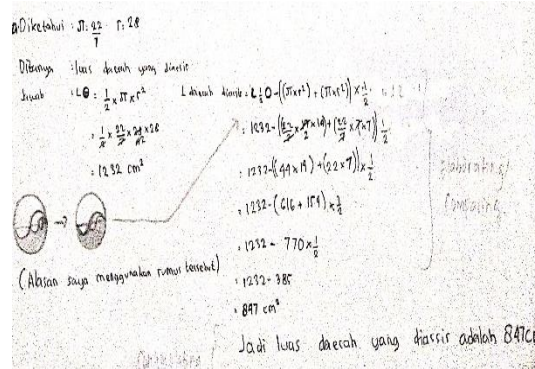 Diketahui : π : 22/7 r : 28
Ditanya : luas daerah yang diarsir
Jawab : L⊖ : 1/2 x π x r²
: 1/2 x 22/7 x 28 x 28
: 1232 cm²
(Alasan saya menggunakan rumus tersebut)
L daerah diarsir = L 1/2 O - ((π x r²) + (π x r²)) x 1/2
: 1232 - (22/7 x 14 x 14) + (22/7 x 7 x 7)) 1/2
: 1232 - (44 x 14) + (22 x 7)) x 1/2
: 1232 - (616 + 154) x 1/2
: 1232 - 770 x 1/2
: 1232 - 385
: 847 cm²
Jadi luas daerah yang diarsir adalah 847c